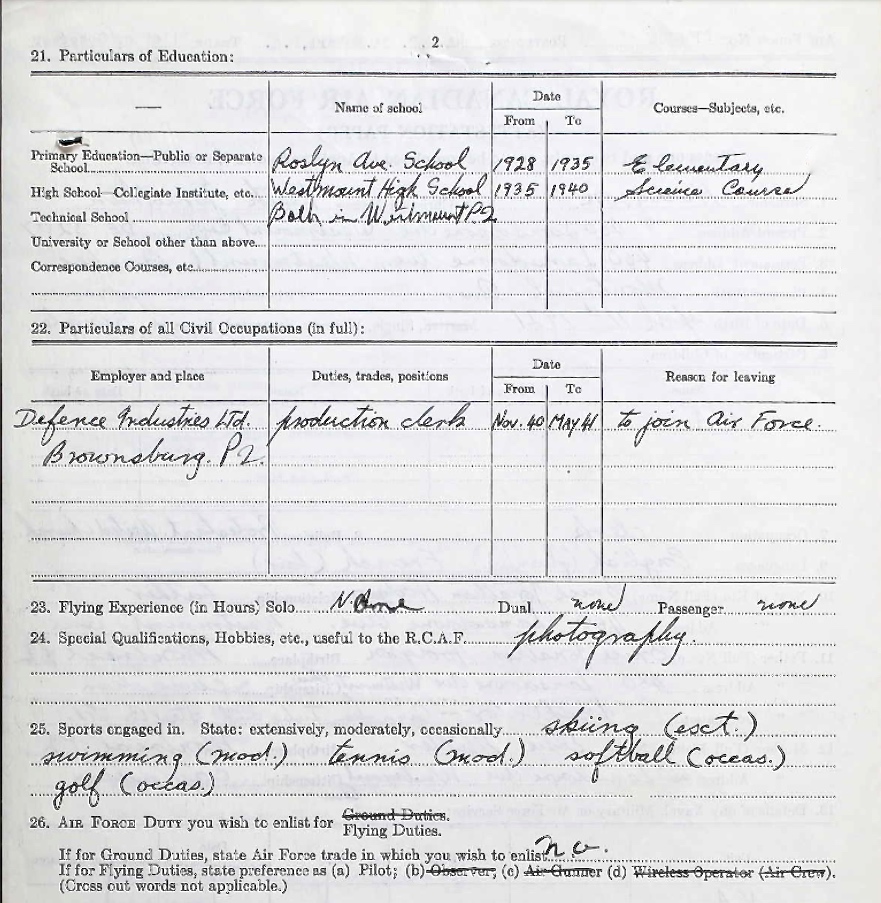 2
21. Particulars of Education:
Name of school Date Courses—Subjects, etc.
From To
Primary Education—Public or Separate School Roslyn Ave. School 1928 1935 Elementary
High School—Collegiate Institute, etc. Westmount High School 1935 1940 Science Course
Technical School Both in Westmount P2
University or School other than above
Correspondence Courses, etc.
22. Particulars of all Civil Occupations (in full):
Employer and place Duties, trades, positions Date Reason for leaving
From To
Defence Industries Ltd. production clerk Nov. 40 MAY 41 to join Air Force.
Brownsburg. P2.
23. Flying Experience (in Hours) Solo None Dual none Passenger none
24. Special Qualifications, Hobbies, etc., useful to the R.C.A.F. photography.
25. Sports engaged in. State: extensively, moderately, occasionally skiing (esct.)
swimming (mod.) tennis (mod.) softball (occas.)
golf (occas.)
26. AIR FORCE DUTY you wish to enlist for Ground Duties.
Flying Duties.
If for Ground Duties, state Air Force trade in which you wish to enlist
If for Flying Duties, state preference as (a) Pilot; (b) Observer; (c) Air Gunner (d) Wireless Operator (Air Crew).
(Cross out words not applicable.)